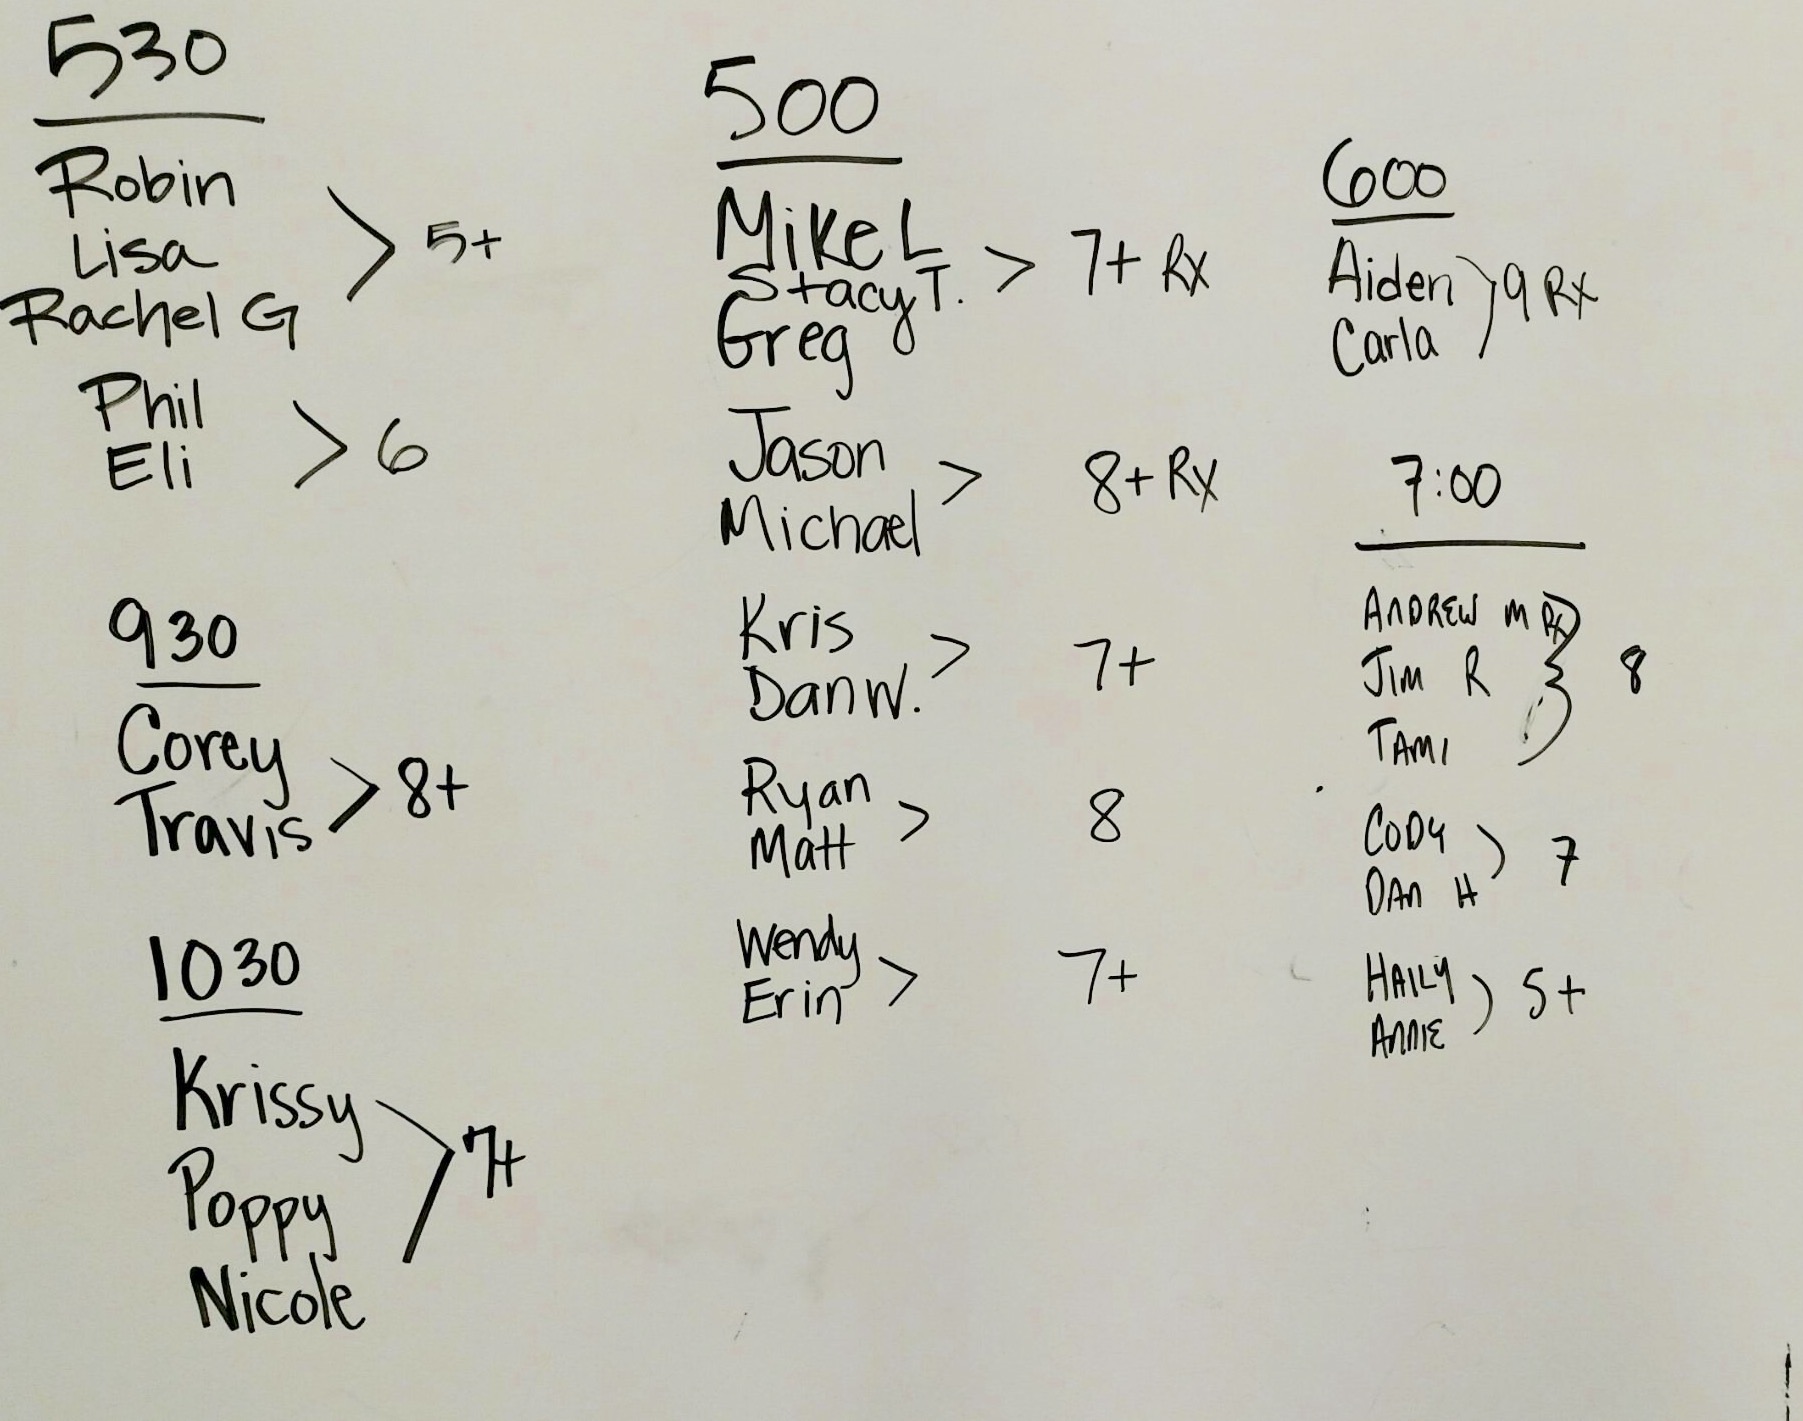 530
Robin
Lisa
Rachel G
> 5+
Phil
Eli
> 6
930
Corey
Travis
> 8+
1030
Krissy
Poppy
Nicole
7+
500
Mike L
Stacy T.
Greg
> 7+ Rx
Jason
Michael
> 8+ Rx
Kris
Dan W.
> 7+
Ryan
Matt
> 8
Wendy
Erin
> 7+
600
Aiden
Carla
) 9 Rx
7:00
ANDREW M Rx
JIM R
TAMI
8
CODY
DAN H
) 7
HAILY
ANNIE
) 5+